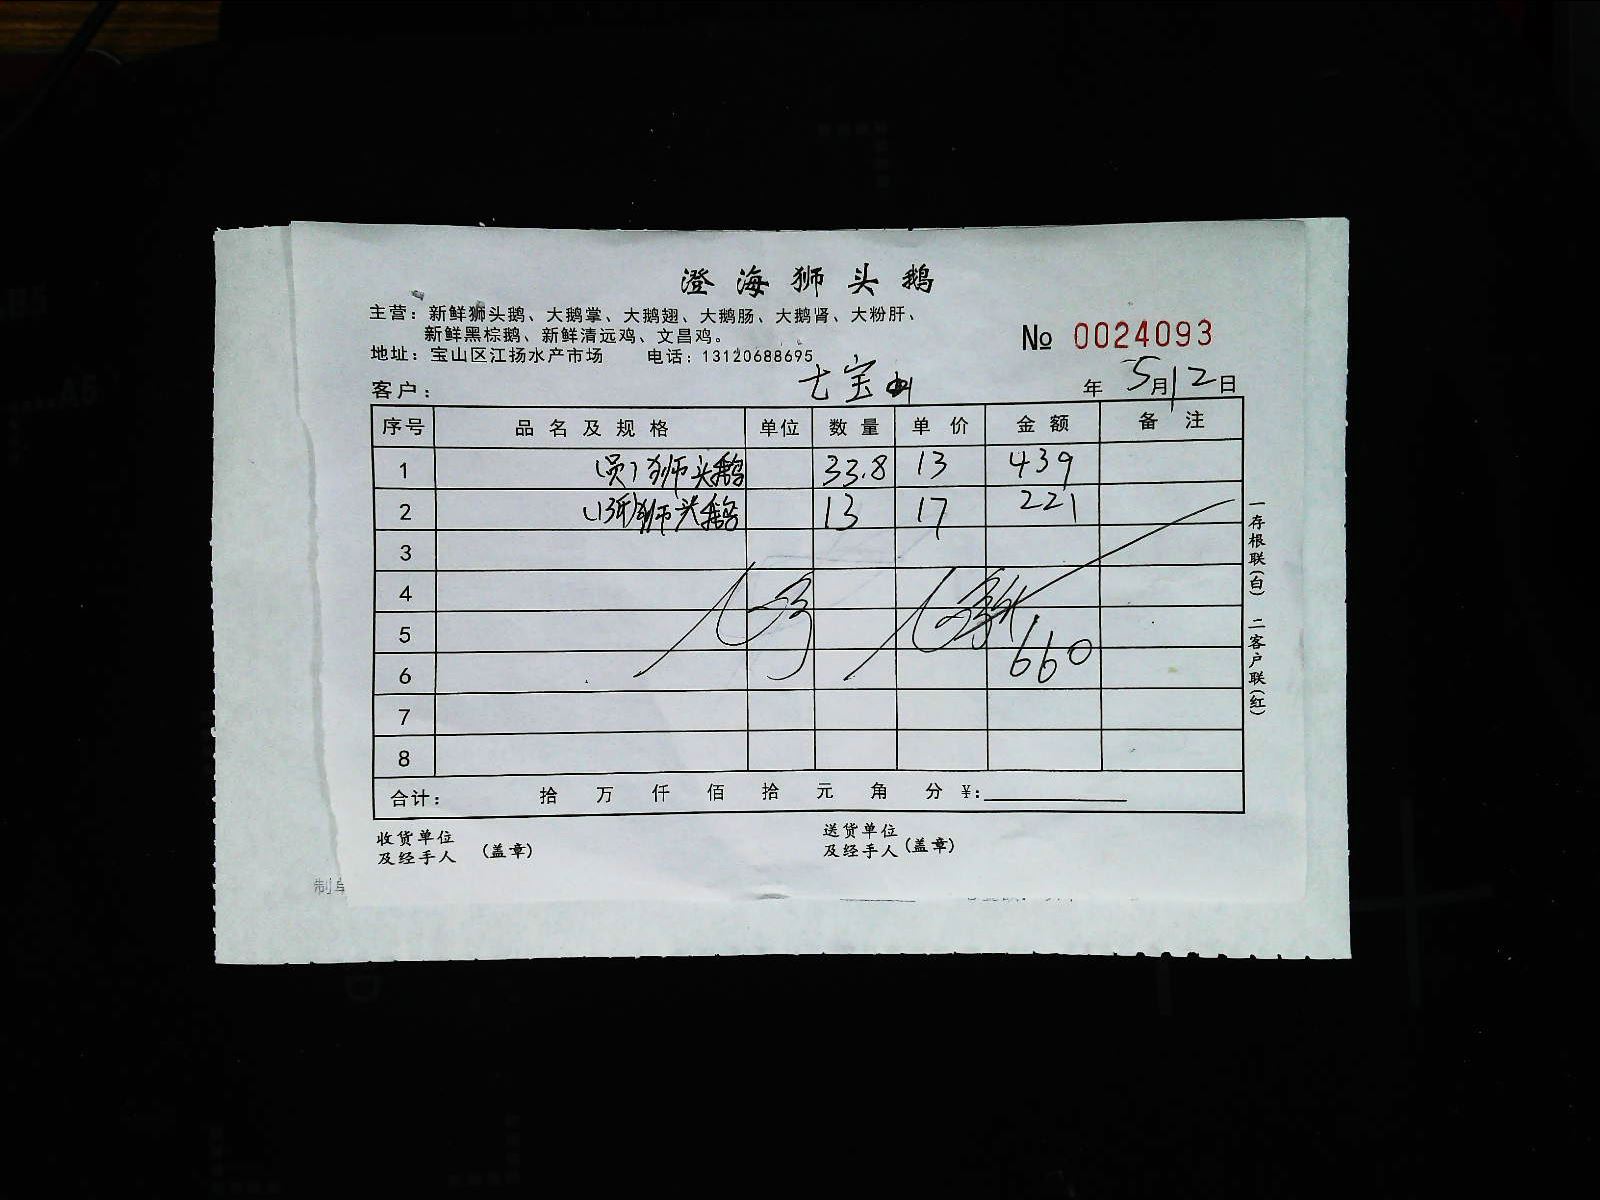 澄海狮头鹅
主营：新鲜狮头鹅、大鹅掌、大鹅翅、大鹅肠、大鹅肾、大粉肝、
新鲜黑棕鹅、新鲜清远鸡、文昌鸡。
№ 0024093
地址：宝山区江扬水产市场 电话：13120688695
客户： 七宝 年 5月12日
序号 品名及规格 单位 数量 单价 金额 备注
1 狮头鹅 33.8 13 439
2 狮头鹅 13 17 221
3
4
5
6 660
7
8
合计： 拾 万 仟 佰 拾 元 角 分 ¥:
一存根联(白) 二客户联(红)
收货单位 送货单位
及经手人 (盖章) 及经手人 (盖章)